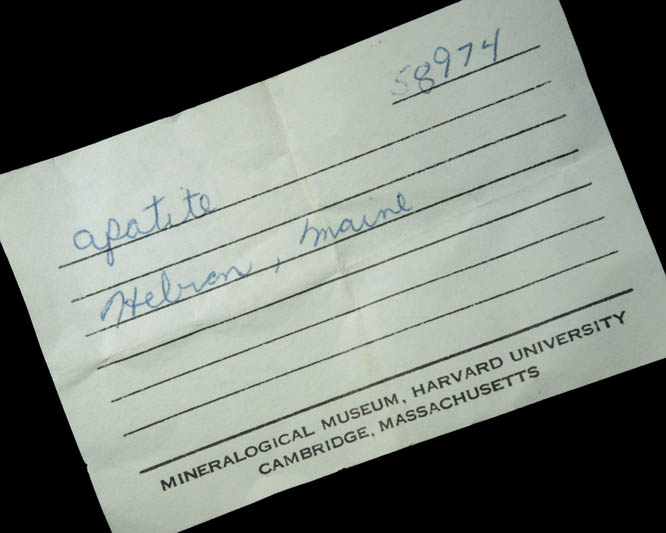 58974
apatite
Hebron, Maine
MINERALOGICAL MUSEUM, HARVARD UNIVERSITY
CAMBRIDGE, MASSACHUSETTS